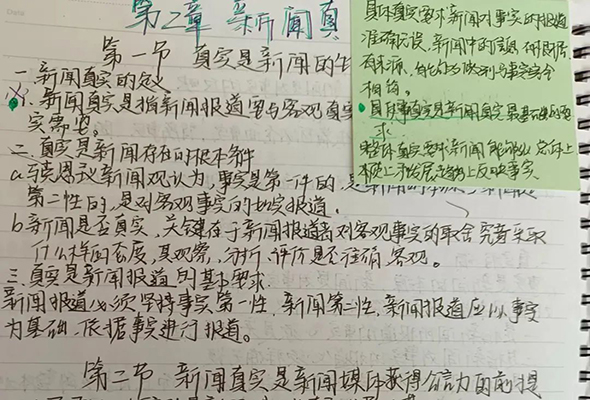 第2章 新闻真
第一节 真实是新闻的生
一. 新闻真实的定义
1. 新闻真实是指新闻报道要与客观真实
实需要。
二. 真实是新闻存在的根本条件
a. 马克思主义新闻观认为,事实是第一性的,是新闻的
第二性的,是对客观事实的如实报道。
b. 新闻是否真实,关键在于新闻报道者对客观事实的取舍究竟采取
什么样的态度,其观察,分析,评价是否准确客观。
三. 真实是新闻报道的基本要求
新闻报道必须坚持事实第一性,新闻第二性,新闻报道应以事实
为基础,依据事实进行报道。
第二节 新闻真实是新闻媒体获得公信力的前提
具体真实要求新闻对事实的报道
准确无误,新闻中的信息
有来源,
相符。
具体真实是新闻真实最基础的要
求
整体真实要求新闻能够从总体上
本质上于发展趋势上反映事实